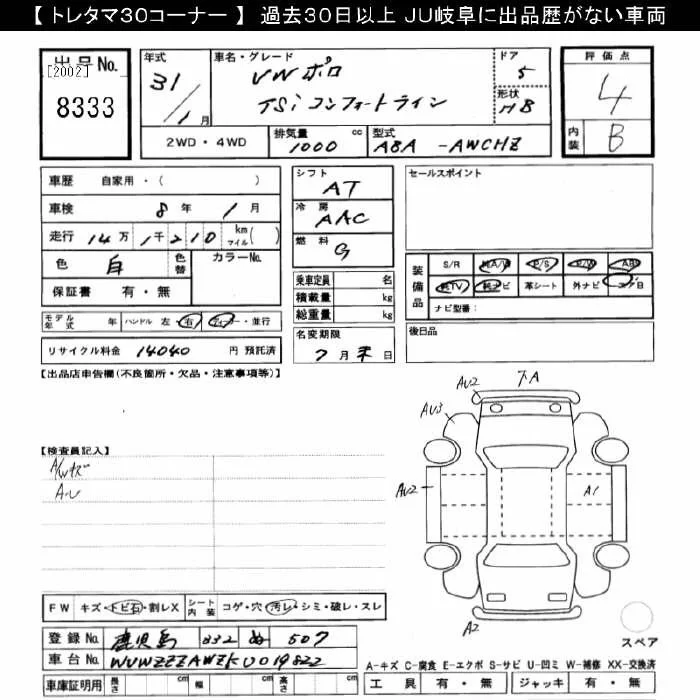 【 トレタマ30コーナー 】 過去30日以上 JU岐阜に出品歴がない車両
出品No.
[2002]
8333
年式
31/1月
車名・グレード
VW ポロ
TSi コンフォートライン
ドア
5
形状
HB
評価点
4
内装
B
2WD・4WD
排気量
1000
cc
型式
ABA -AWCHZ
車歴 自家用・( )
車検 8年 1月
走行 14万1千210 km マイル( )
色 白 色替 カラーNo.
保証書 有・無
モデル年式 年 ハンドル 左・右 ディーラー・並行
リサイクル料金 14040 円 預託済
シフト
AT
冷房
AAC
燃料
G
乗車定員 名
積載量 kg
総重量 kg
名変期限
2月末日
セールスポイント
装備品
S/R 純A/W P/S P/W ABS
純TV 純ナビ 革シート 外ナビ エアB
ナビ型番:
後日品
【出品店車申告欄(不良箇所・欠品・注意事項等)】
【検査員記入】
A/Wキズ
A・U
AU2
下A
AU3
AU2
A1
A2
スペア
FW キズ・トビ石・割レX シート内装 コゲ・穴・汚レ・シミ・破レ・スレ
登録No. 鹿児島 332 ぬ 507
車台No. WVWZZZAWZKU019822
車庫証明用 長さ cm 幅 cm 高さ cm
A-キズ C-腐食 E-エクボ S-サビ U-凹ミ W-補修 XX-交換済
工具 有・無 ジャッキ 有・無